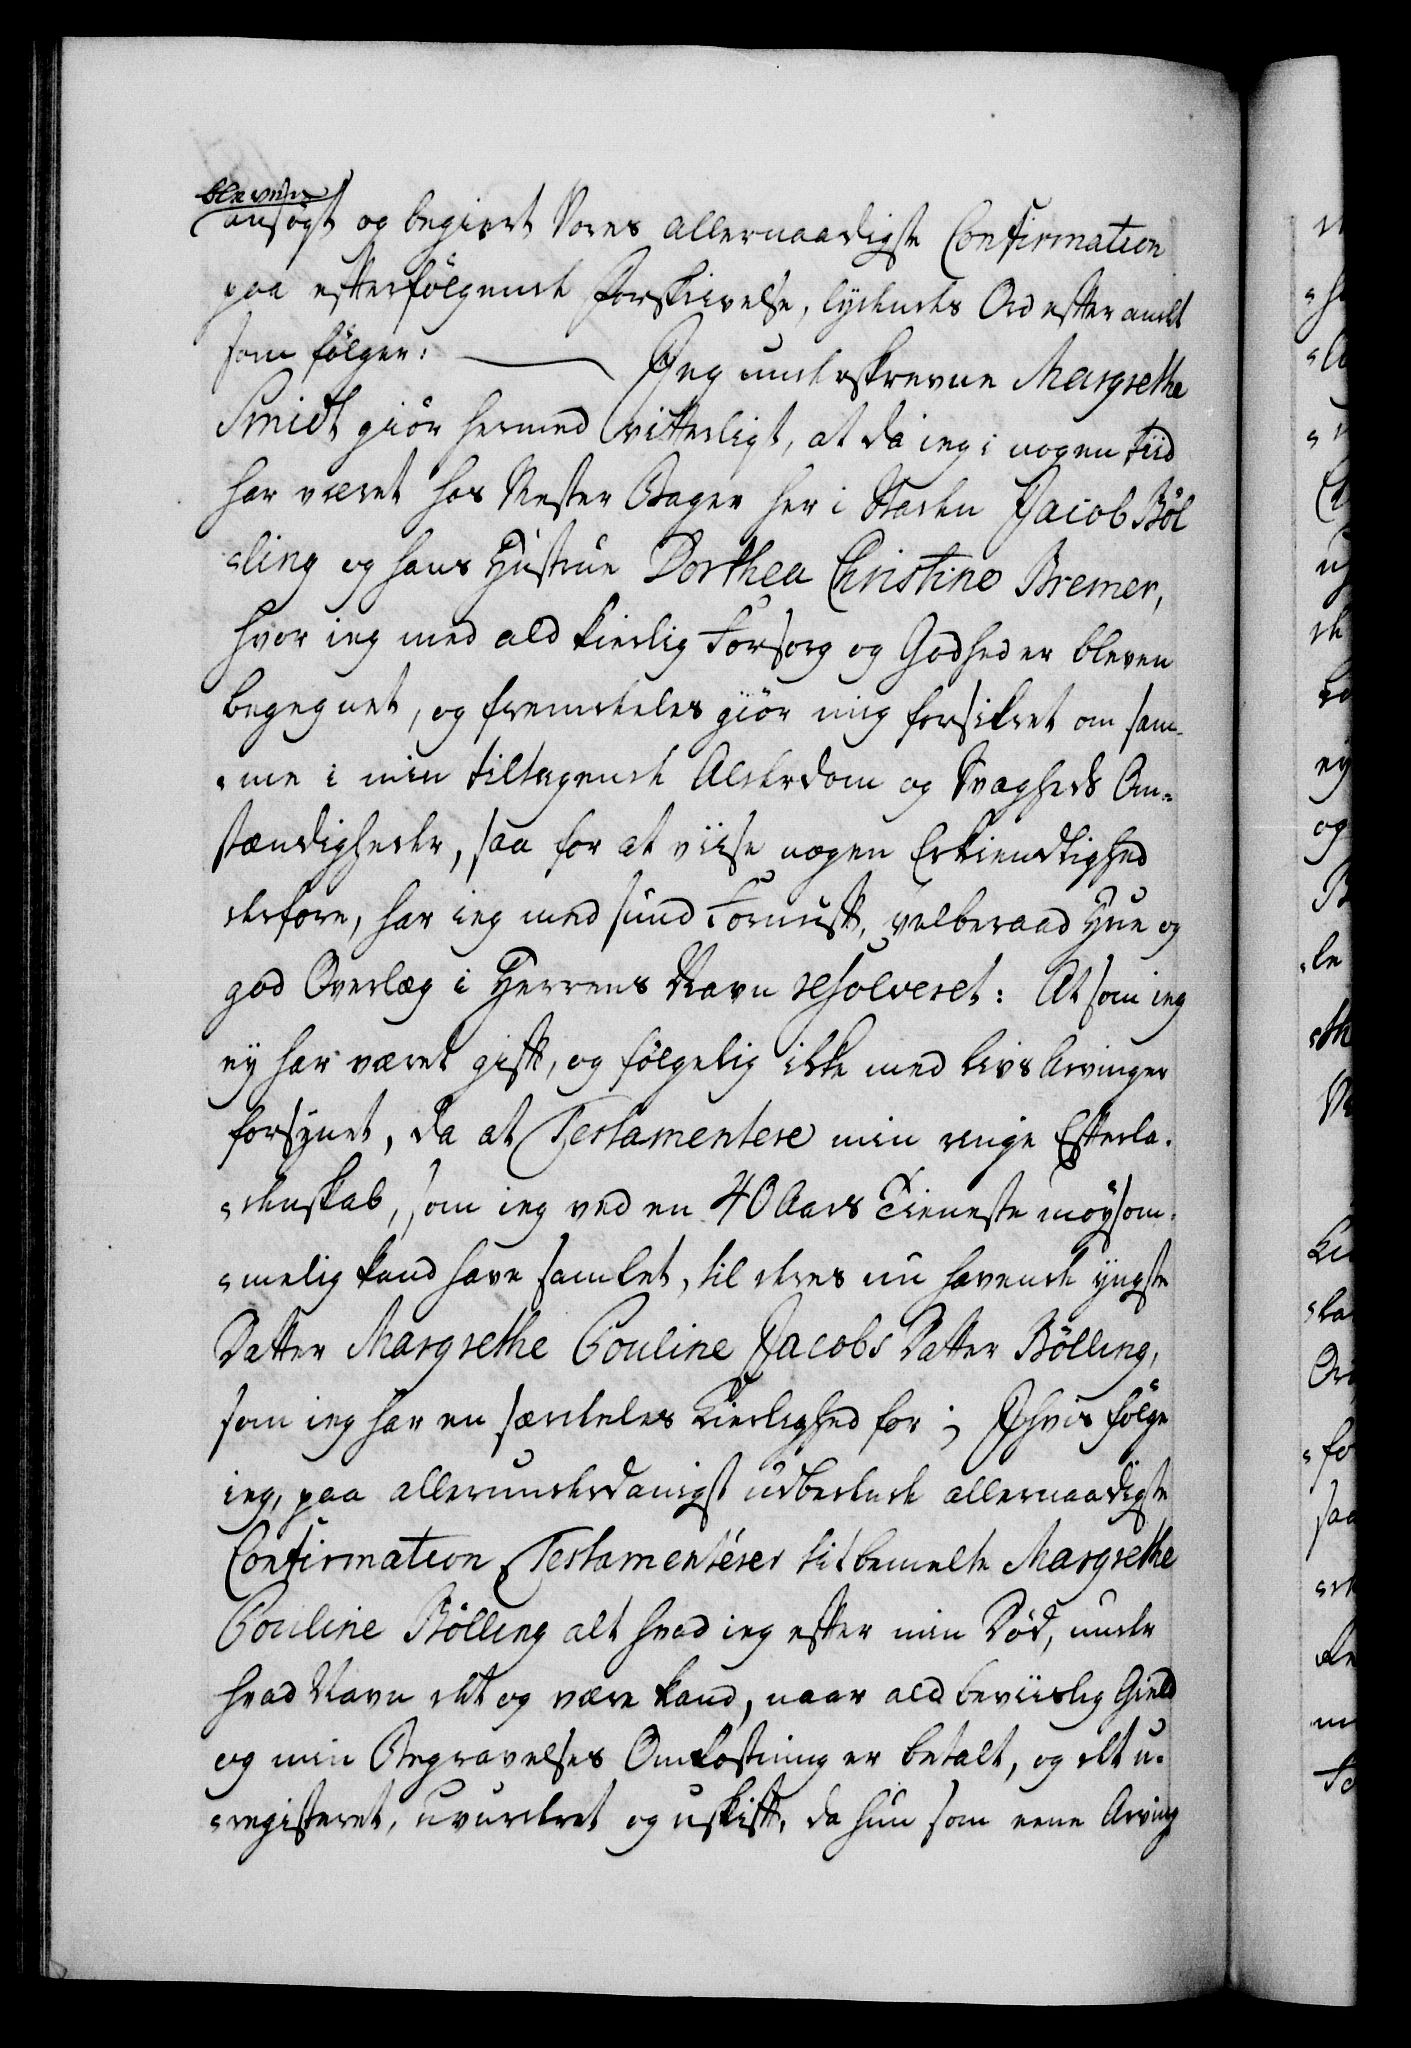 bleven
ansøgt og begiert Vores allernaadigste Confirmation
paa efterfølgende Forskrivelse, lydendes Ord efter andet
som følger: Jeg underskrevne Margrethe
Smidt giør hermed vitterligt, at da ieg i nogen tiid
har været hos Mester Bager her i Staden Jacob Bøl
=ling og hans Hustrue Dorthea Christine Bremer,
hvor ieg med ald kierlig Forsorg og Godhed er bleven
begegnet, og fremdeles giør mig forsikret om sam-
=me i min tiltagende Alderdom og Svagheds Om=
stændigheder, saa for at viise nogen Erkiendtlighed
derfore, har ieg med sund Fornuft, velberaad Hue og
god Overlæg i Herrens Navn resolveret: At som ieg
ey har været gift, og følgelig ikke med Livs Arvinger
forsynet, da at Testamentere min ringe Efterla-
=denskab, som ieg ved en 40 Aars Tieneste møysom-
=melig kand have samlet, til deres nu havende yngste
Datter Margrethe Pouline Jacobs Datter Bølling,
som ieg har en særdeles Kierlighed for; J hvis følge
ieg, paa allerunderdanigst udbedende allernaadigste
Confirmation, Testamenterer til bemelte Margrethe
Pouline Bølling alt hvad ieg efter min Død, under
hvad Navn det og være kand, naar ald beviislig Gield
og min Begravelses Omkostning er betalt, og det u-
=registeret, uvurderet og uskift, da hun som eene Arving